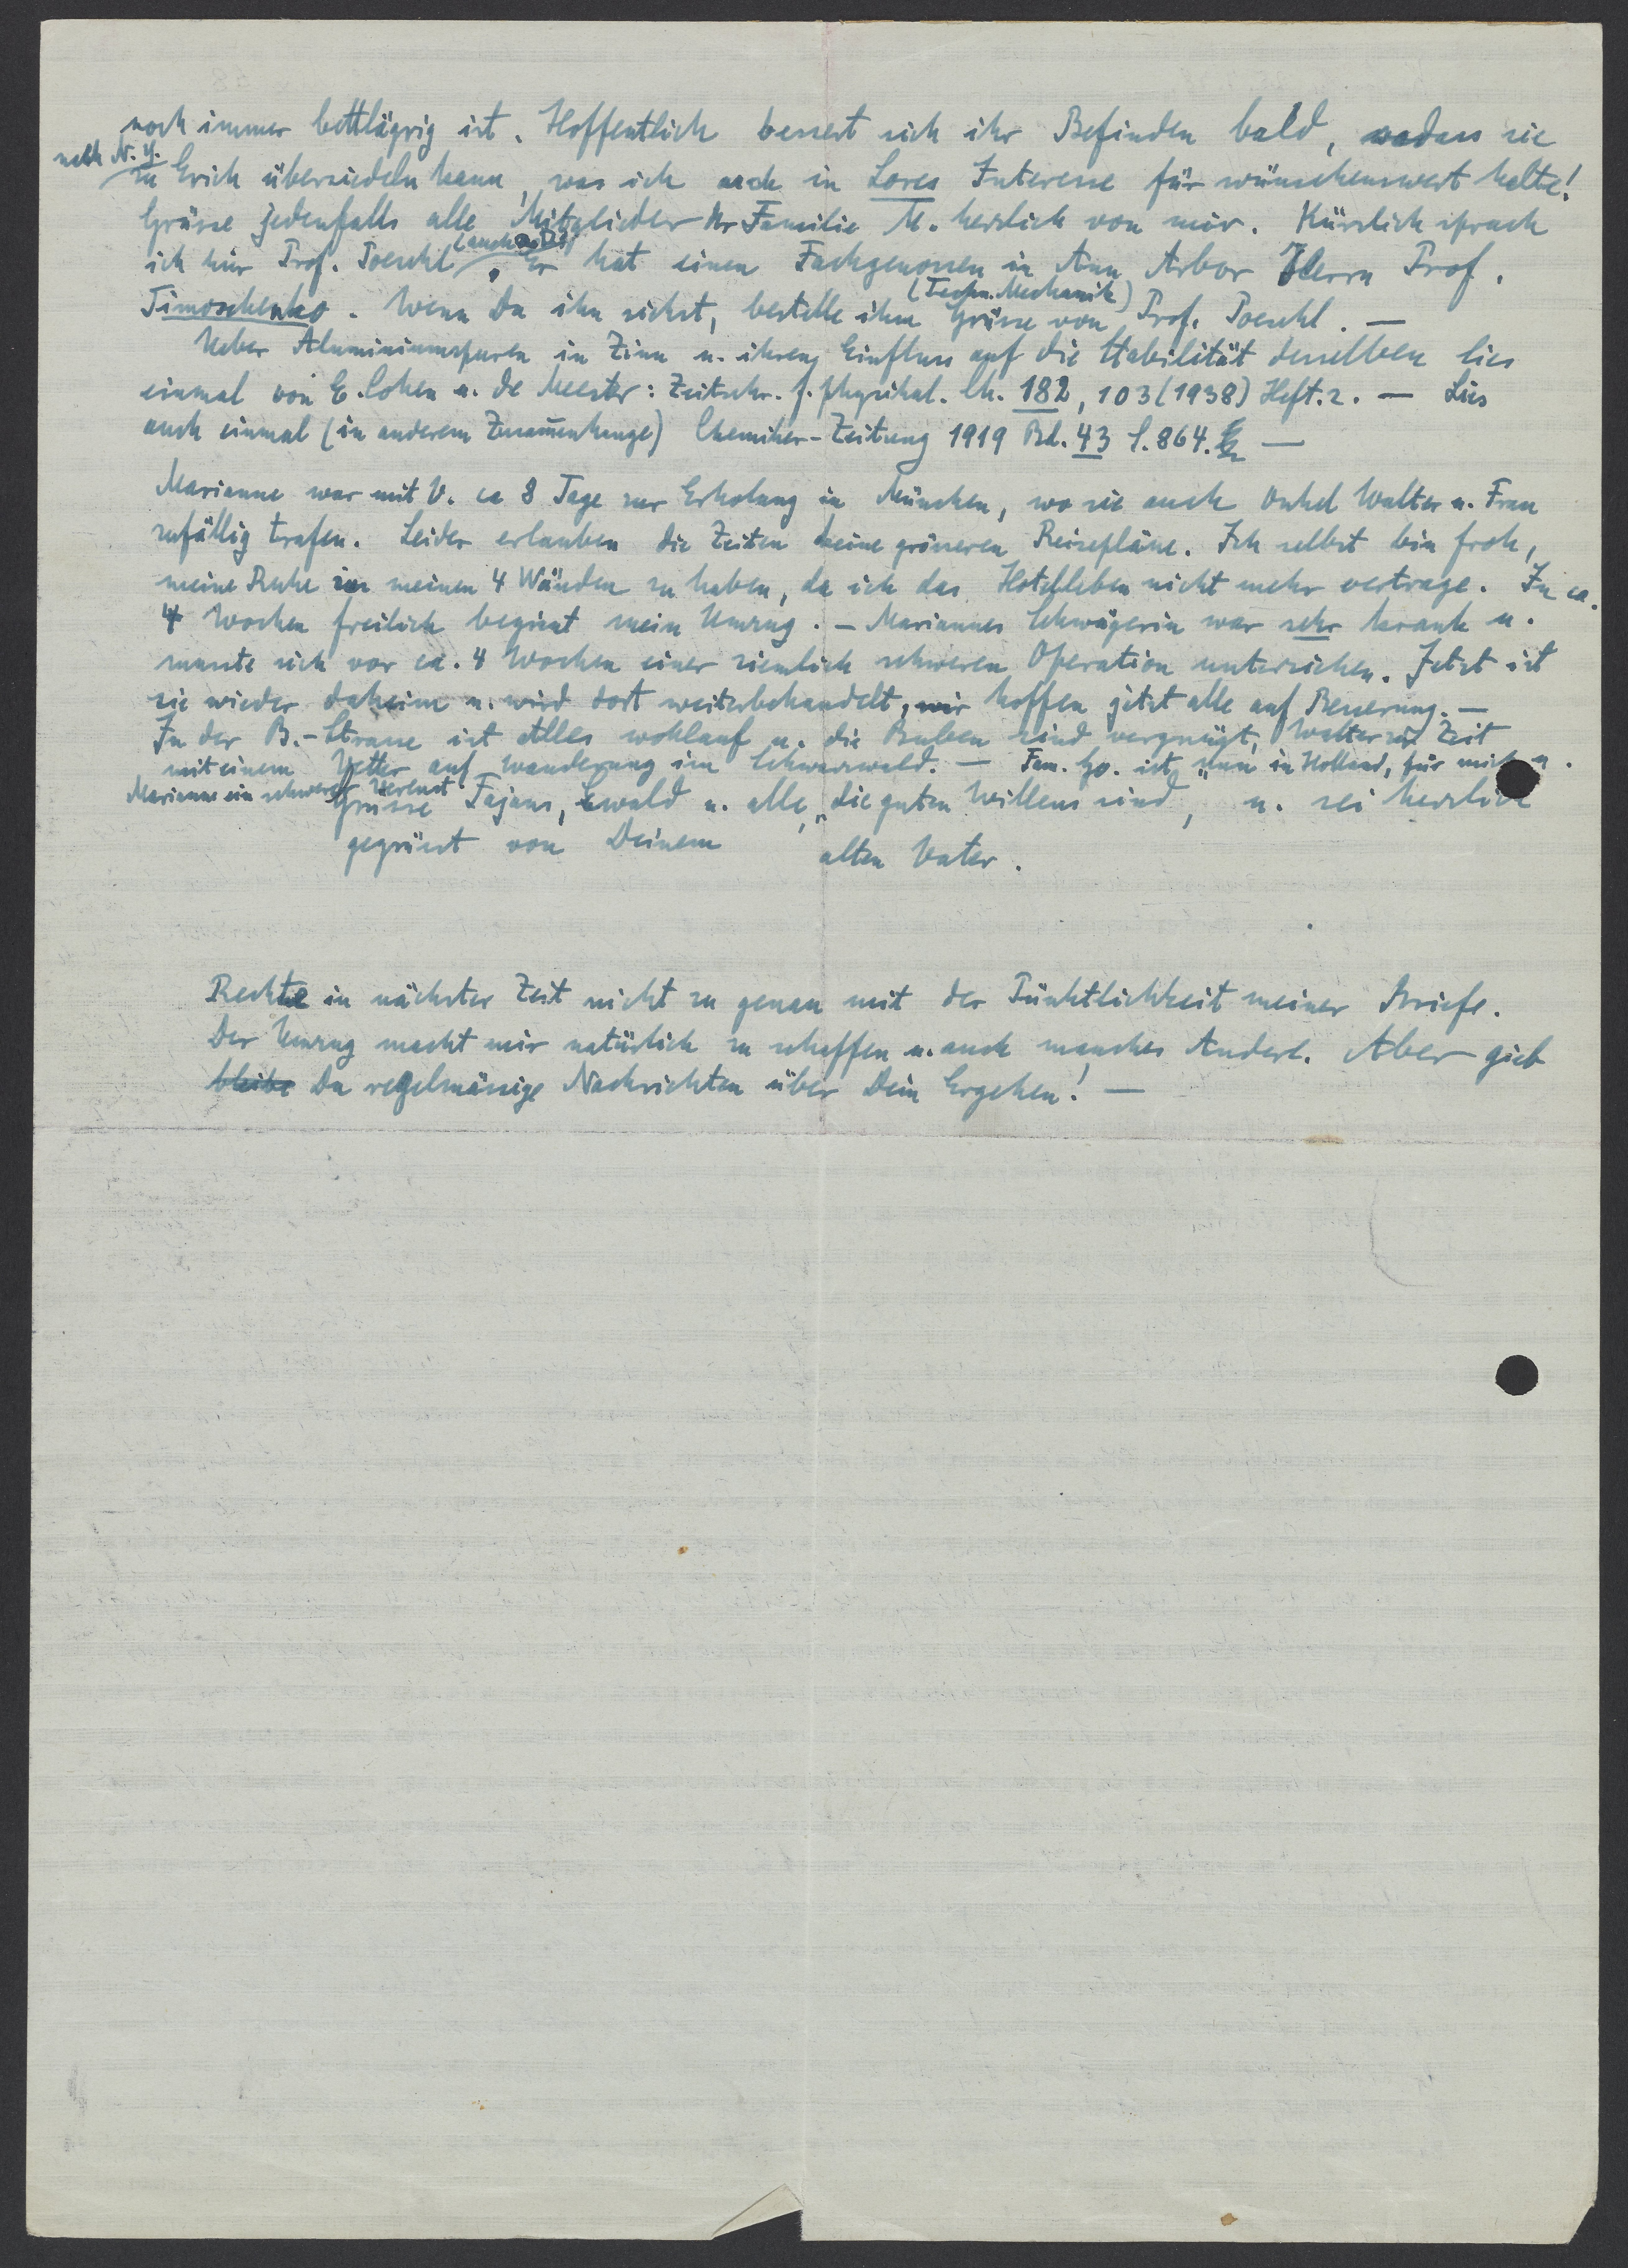 noch immer bettlägrig ist. Hoffentlich bessert sich ihr Befinden bald, sodass sie
nach N. Y.
zu Erich übersiedeln kann, was ich auch in Lores Interesse für wünschenswert halte!
Grüsse jedenfalls alle Mitglieder der Familie M. herzlich von mir. Kürzlich sprach
ich hier Prof. Poeschl (auch a. D.). Er hat einen Fachgenossen in Ann Arbor Herrn Prof.
Timoschenko. Wenn Du ihn siehst, bestelle ihm Grüsse von (Techn. Mechanik) Prof. Poeschl. —
Ueber Aluminiumspuren in Zinn u. ihren Einfluss auf die Stabilität desselben lies
einmal von E. Cohen u. de Meester: Zeitschr. f. physikal. Ch. 182, 103 (1938) Heft. 2. — Lies
auch einmal (in anderem Zusam̄enhange) Chemiker-Zeitung 1919 Bd. 43 S. 864. —
Marianne war mit V. ca 8 Tage zur Erholung in München, wo sie auch Onkel Walter u. Frau
zufällig trafen. Leider erlauben die Zeiten keine grösseren Reisepläne. Ich selbst bin froh,
meine Ruhe in meinen 4 Wänden zu haben, da ich das Hotelleben nicht mehr vertrage. In ca.
4 Wochen freilich beginnt mein Umzug. — Mariannes Schwägerin war sehr krank u.
musste sich vor ca. 4 Wochen einer ziemlich schweren Operation unterziehen. Jetzt ist
sie wieder daheim u. wird dort weiterbehandelt, wir hoffen jetzt alle auf Besserung. —
In der B.-Strasse ist Alles wohlauf u. die Buben sind vergnügt, Walter zur Zeit
mit einem Vetter auf Wanderung im Schwarzwald. — Fam. Go. ist nun in Holland, für mich u.
Marianne ein schwerer Verlust
Grüsse Fajans, Ewald u. alle, „die guten Willens sind, u. sei herzlich
gegrüsst von Deinem alten Vater.
Rechte in nächster Zeit nicht zu genau mit der Pünktlichkeit meiner Briefe.
Der Umzug macht mir natürlich zu schaffen u. auch manches Andere. Aber gieb
bleibe Du regelmässige Nachrichten über Dein Ergehen! —